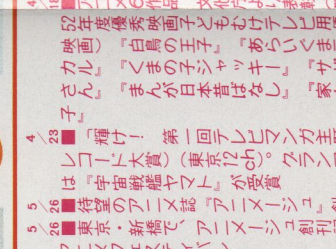 52年度優秀映画子どもむけテレビ用
映画)『白鳥の王子』『あらいぐま
カル』『くまの子ジャッキー』『サ
さん』『まんが日本昔ばなし』『家
子』
4/23 ■「輝け! 第一回テレビマンガ主
レコード大賞」(東京12ch)。グラン
は『宇宙戦艦ヤマト』が受賞
5/26 ■待望のアニメ誌『アニメージュ』
5/26 ■東京・新橋で、アニメージュ創刊